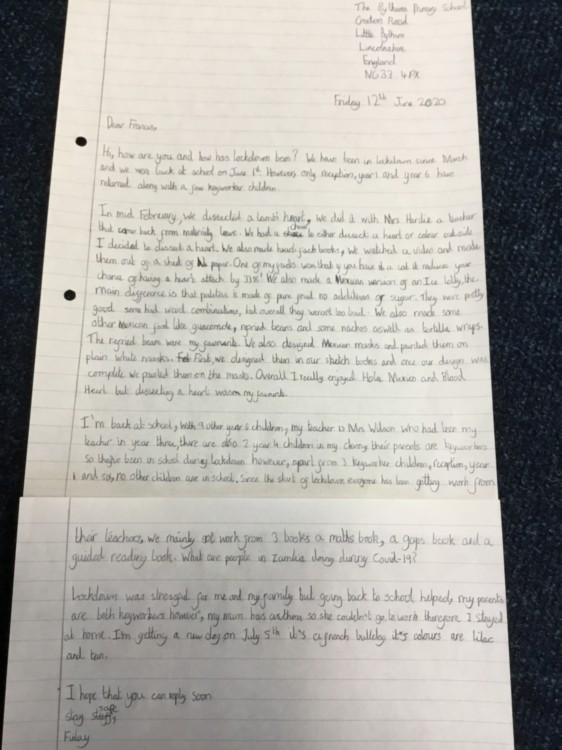 The Bythams Primary School
Creeton Road
Little Bytham
Lincolnshire
England
NG33 4PX
Friday 12th June 2020
Dear Francis,
Hi, how are you and how has lockdown been? We have been in lockdown since March
and we were back at school on June 1st. However, only reception, year 1 and year 6 have
returned along with a few keyworker children.
In mid February, we dissected a lamb's heart, we did it with Mrs Hardie a teacher
that came back from maternity leave. We had a choice to either dissect a heart or colour outside
I decided to dissect a heart. We also made heart fact books, we watched a video and made
them out of a sheet of A4 paper. One of my facts was that if you have a cat it reduces your
chance of having a heart attack by 33%! We also made a Mexican version of an Ice lolly, the
main difference is that paletas is made of pure fruit no additives or sugar. They were pretty
good some had weird combinations, but overall they weren't too bad. We also made some
other Mexican food like guacamole, refried beans and some nachos aswell as tortilla wraps.
The refried beans were my favourite. We also designed Mexican masks and painted them on
plain white masks. First, we designed them in our sketch books and once our design was
complete we painted them on the masks. Overall I really enjoyed Hola Mexico and Blood
Heart but dissecting a heart was my favourite.
I'm back at school, with 9 other year 6 children, my teacher is Mrs Wilson who had been my
teacher in year three, there are also 2 year 4 children in my class, their parents are keyworkers
so they've been in school during lockdown however, apart from 3 keyworker children, reception, year
1 and six, no other children are in school. Since the start of lockdown everyone has been getting work from
their teachers, we mainly get work from 3 books a maths book, a gaps book and a
guided reading book. What are people in Zambia doing during Covid-19?
Lockdown was stressful for me and my family but going back to school helped, my parents
are both keyworkers however, my mum has asthma so she couldn't go to work therefore I stayed
at home. I'm getting a new dog on July 5th it's a french bulldog it's colours are lilac
and tan.
I hope that you can reply soon
stay safe,
Finlay